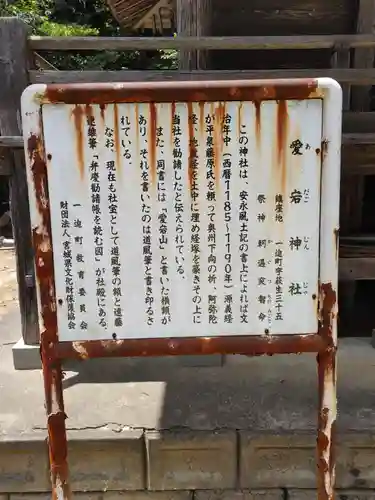 愛宕神社
あたごじんじゃ
鎮座地 一迫町字荻生三十五
祭神 軻遇突智命
かぐつちのみこと
この神社は、安永風土記の書上によれば文
治年中(西暦1185～1190年)源義経
が平泉藤原氏を頼って奥州下向の折、阿弥陀
経、義経を土中に埋め経塚を築きその上に
当社を勧請したと伝えられる。
また、同書には「愛宕山」と書いた横額が
あり、それを書いたのは道風筆と書き印るさ
れている。
なお、現在も社宝として道風筆の額と遠藤
達雄筆「弁慶勧請帳を読む図」が社殿にある。
一迫町教育委員会
財団法人 宮城県文化財保護協会